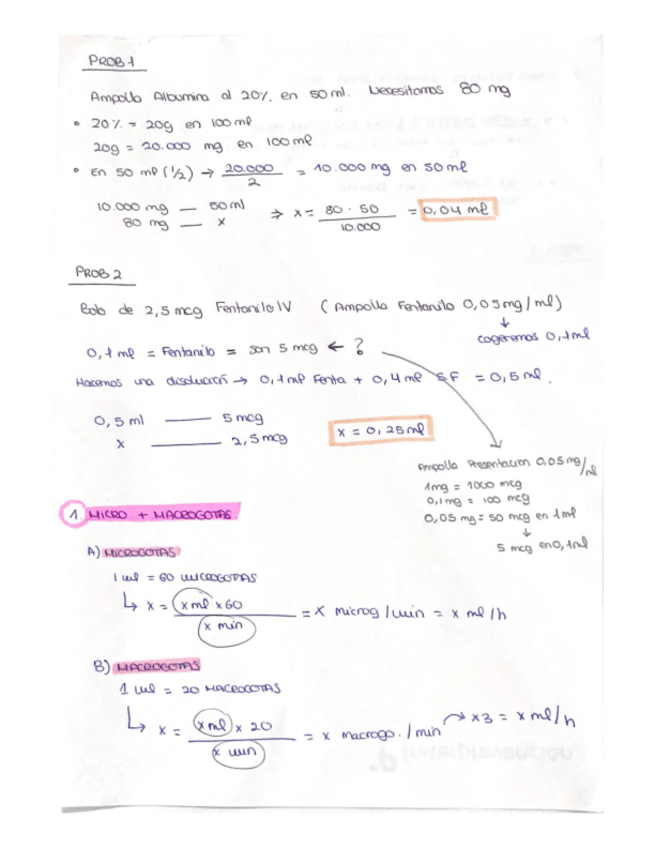 PROB 1
Ampolla Albumina al 20%. en 50 ml. Necesitamos 80 mg
• 20% = 20g en 100 ml
20g = 20.000 mg en 100 ml
• En 50 ml (1/2) → 20.000 / 2 = 10.000 mg en 50 ml
10.000 mg — 50 ml
80 mg — x
⇒ x = 80 · 50 / 10.000 = 0,04 ml
PROB 2
Bolo de 2,5 mcg Fentanilo IV (Ampolla Fentanilo 0,05 mg/ml)
↓
cogeremos 0,1 ml
0,1 ml = Fentanilo = son 5 mcg ← ?
Hacemos una disolución → 0,1 ml Fenta + 0,4 ml SF = 0,5 ml.
0,5 ml —— 5 mcg
x —— 2,5 mcg
x = 0,25 ml
Ampolla Presentacion 0,05 mg/ml
1mg = 1000 mcg
0,1 mg = 100 mcg
0,05 mg = 50 mcg en 1 ml
↓
5 mcg en 0,1 ml
1. MICRO + MACROGOTAS
A) MICROGOTAS
1 ml = 60 MICROGOTAS
↳ x = x ml x 60 / x min = x microg / min = x ml / h
B) MACROGOTAS
1 ml = 20 MACROGOTAS
↳ x = x ml x 20 / x min = x macrogo. / min → x3 = x ml / h